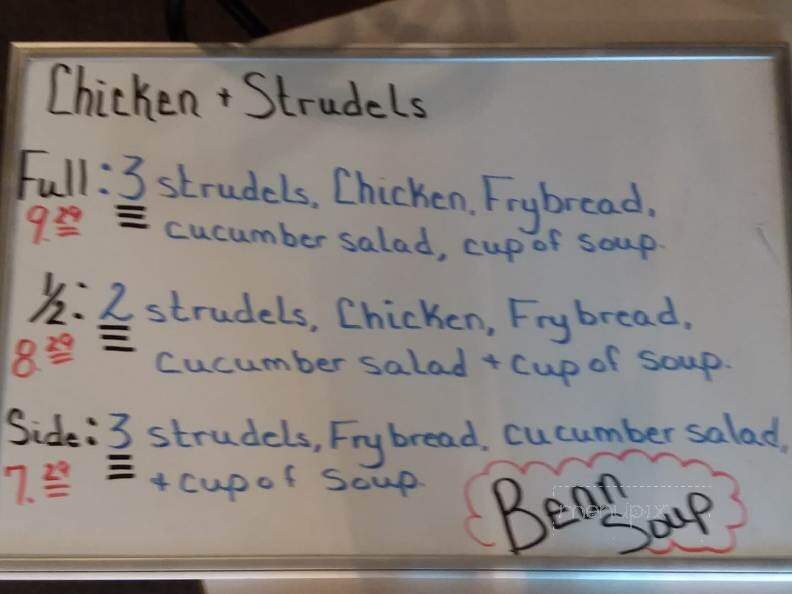 Chicken + Strudels
Full: 3 strudels, Chicken, Frybread,
9.29 cucumber salad, cup of soup.
1/2: 2 strudels, Chicken, Frybread,
8.29 cucumber salad + cup of soup.
Side: 3 strudels, Frybread, cucumber salad,
7.29 + cup of soup.
Benn
Soup
menupix